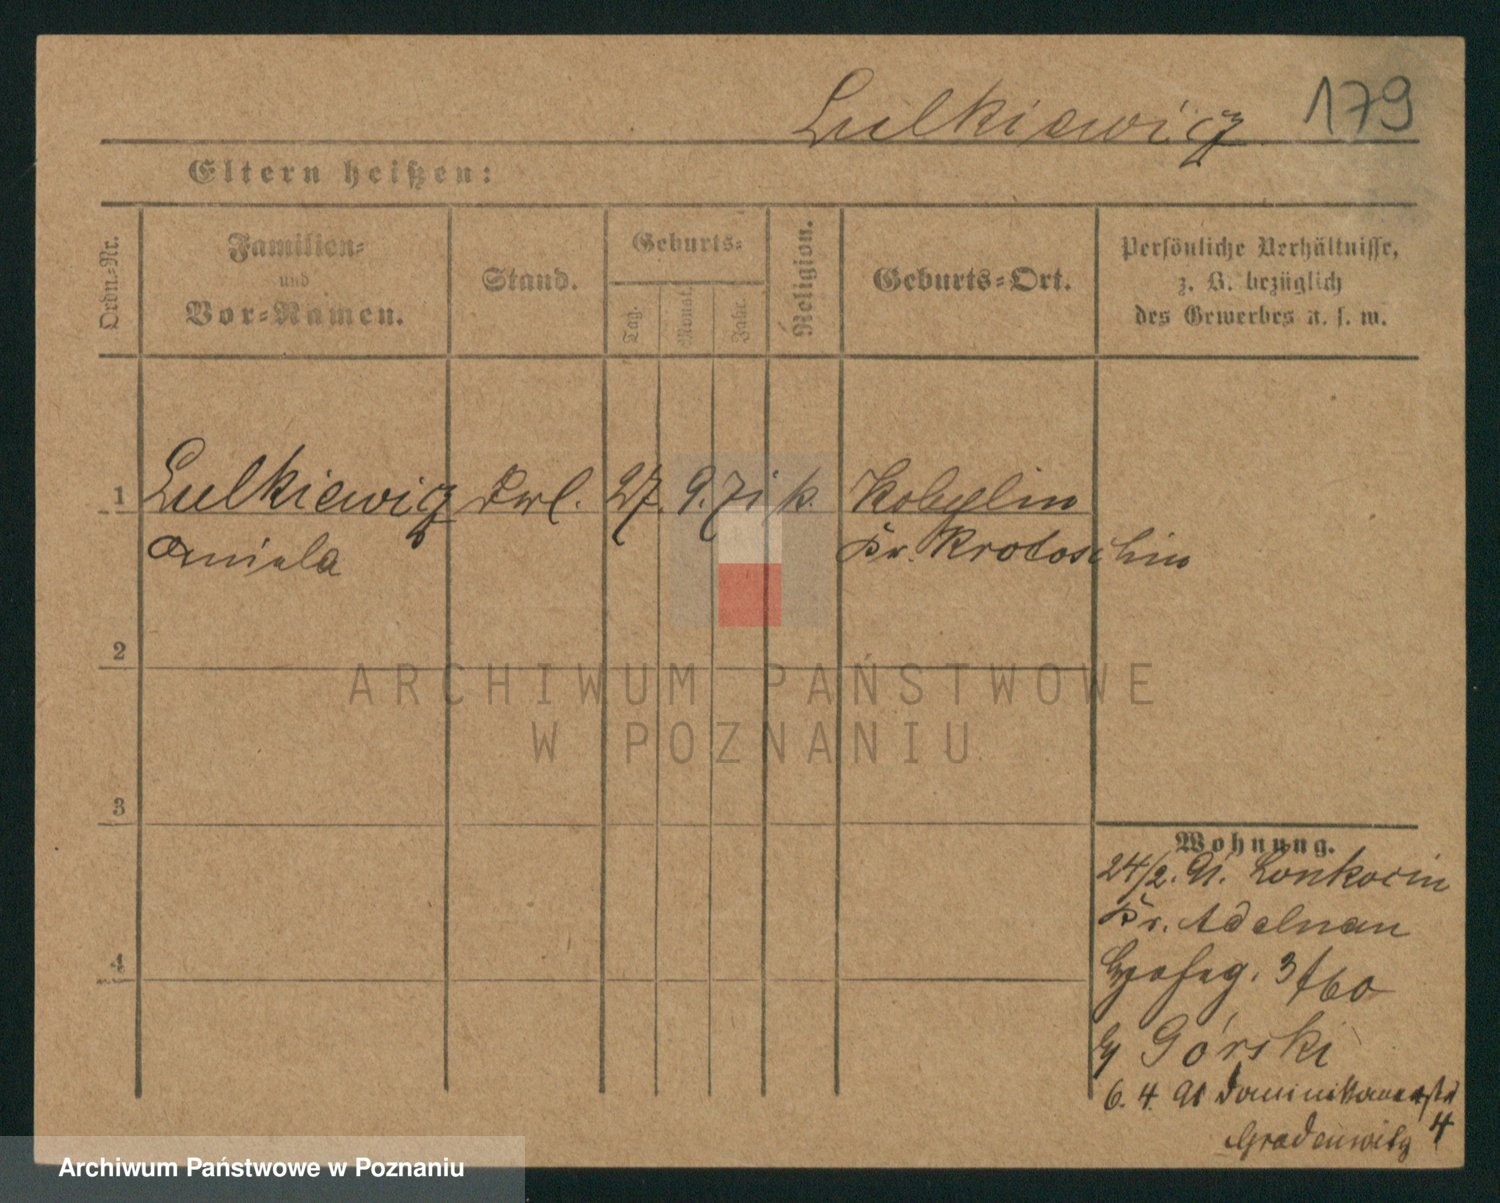 Lulkiewicz 179
Eltern heißen:
Ordn.=Nr.
Familien=
und
Vor=Namen.
Stand.
Geburts=
Tag.
Monat.
Jahr.
Religion.
Geburts=Ort.
Persönliche Verhältnisse,
z. B. bezüglich
des Gewerbes u. s. w.
1 Lulkiewicz Frl. 27. 9. 71 k. Kobylin
Aniela Kr. Krotoschin
2
3
4
Wohnung.
24/2. 91. Lonkocin
Kr. Adelnau
3
Górski
6. 4. 91 Dominikanerstr
4
Gradenwitz
ARCHIWUM PAŃSTWOWE
W POZNANIU
Archiwum Państwowe w Poznaniu